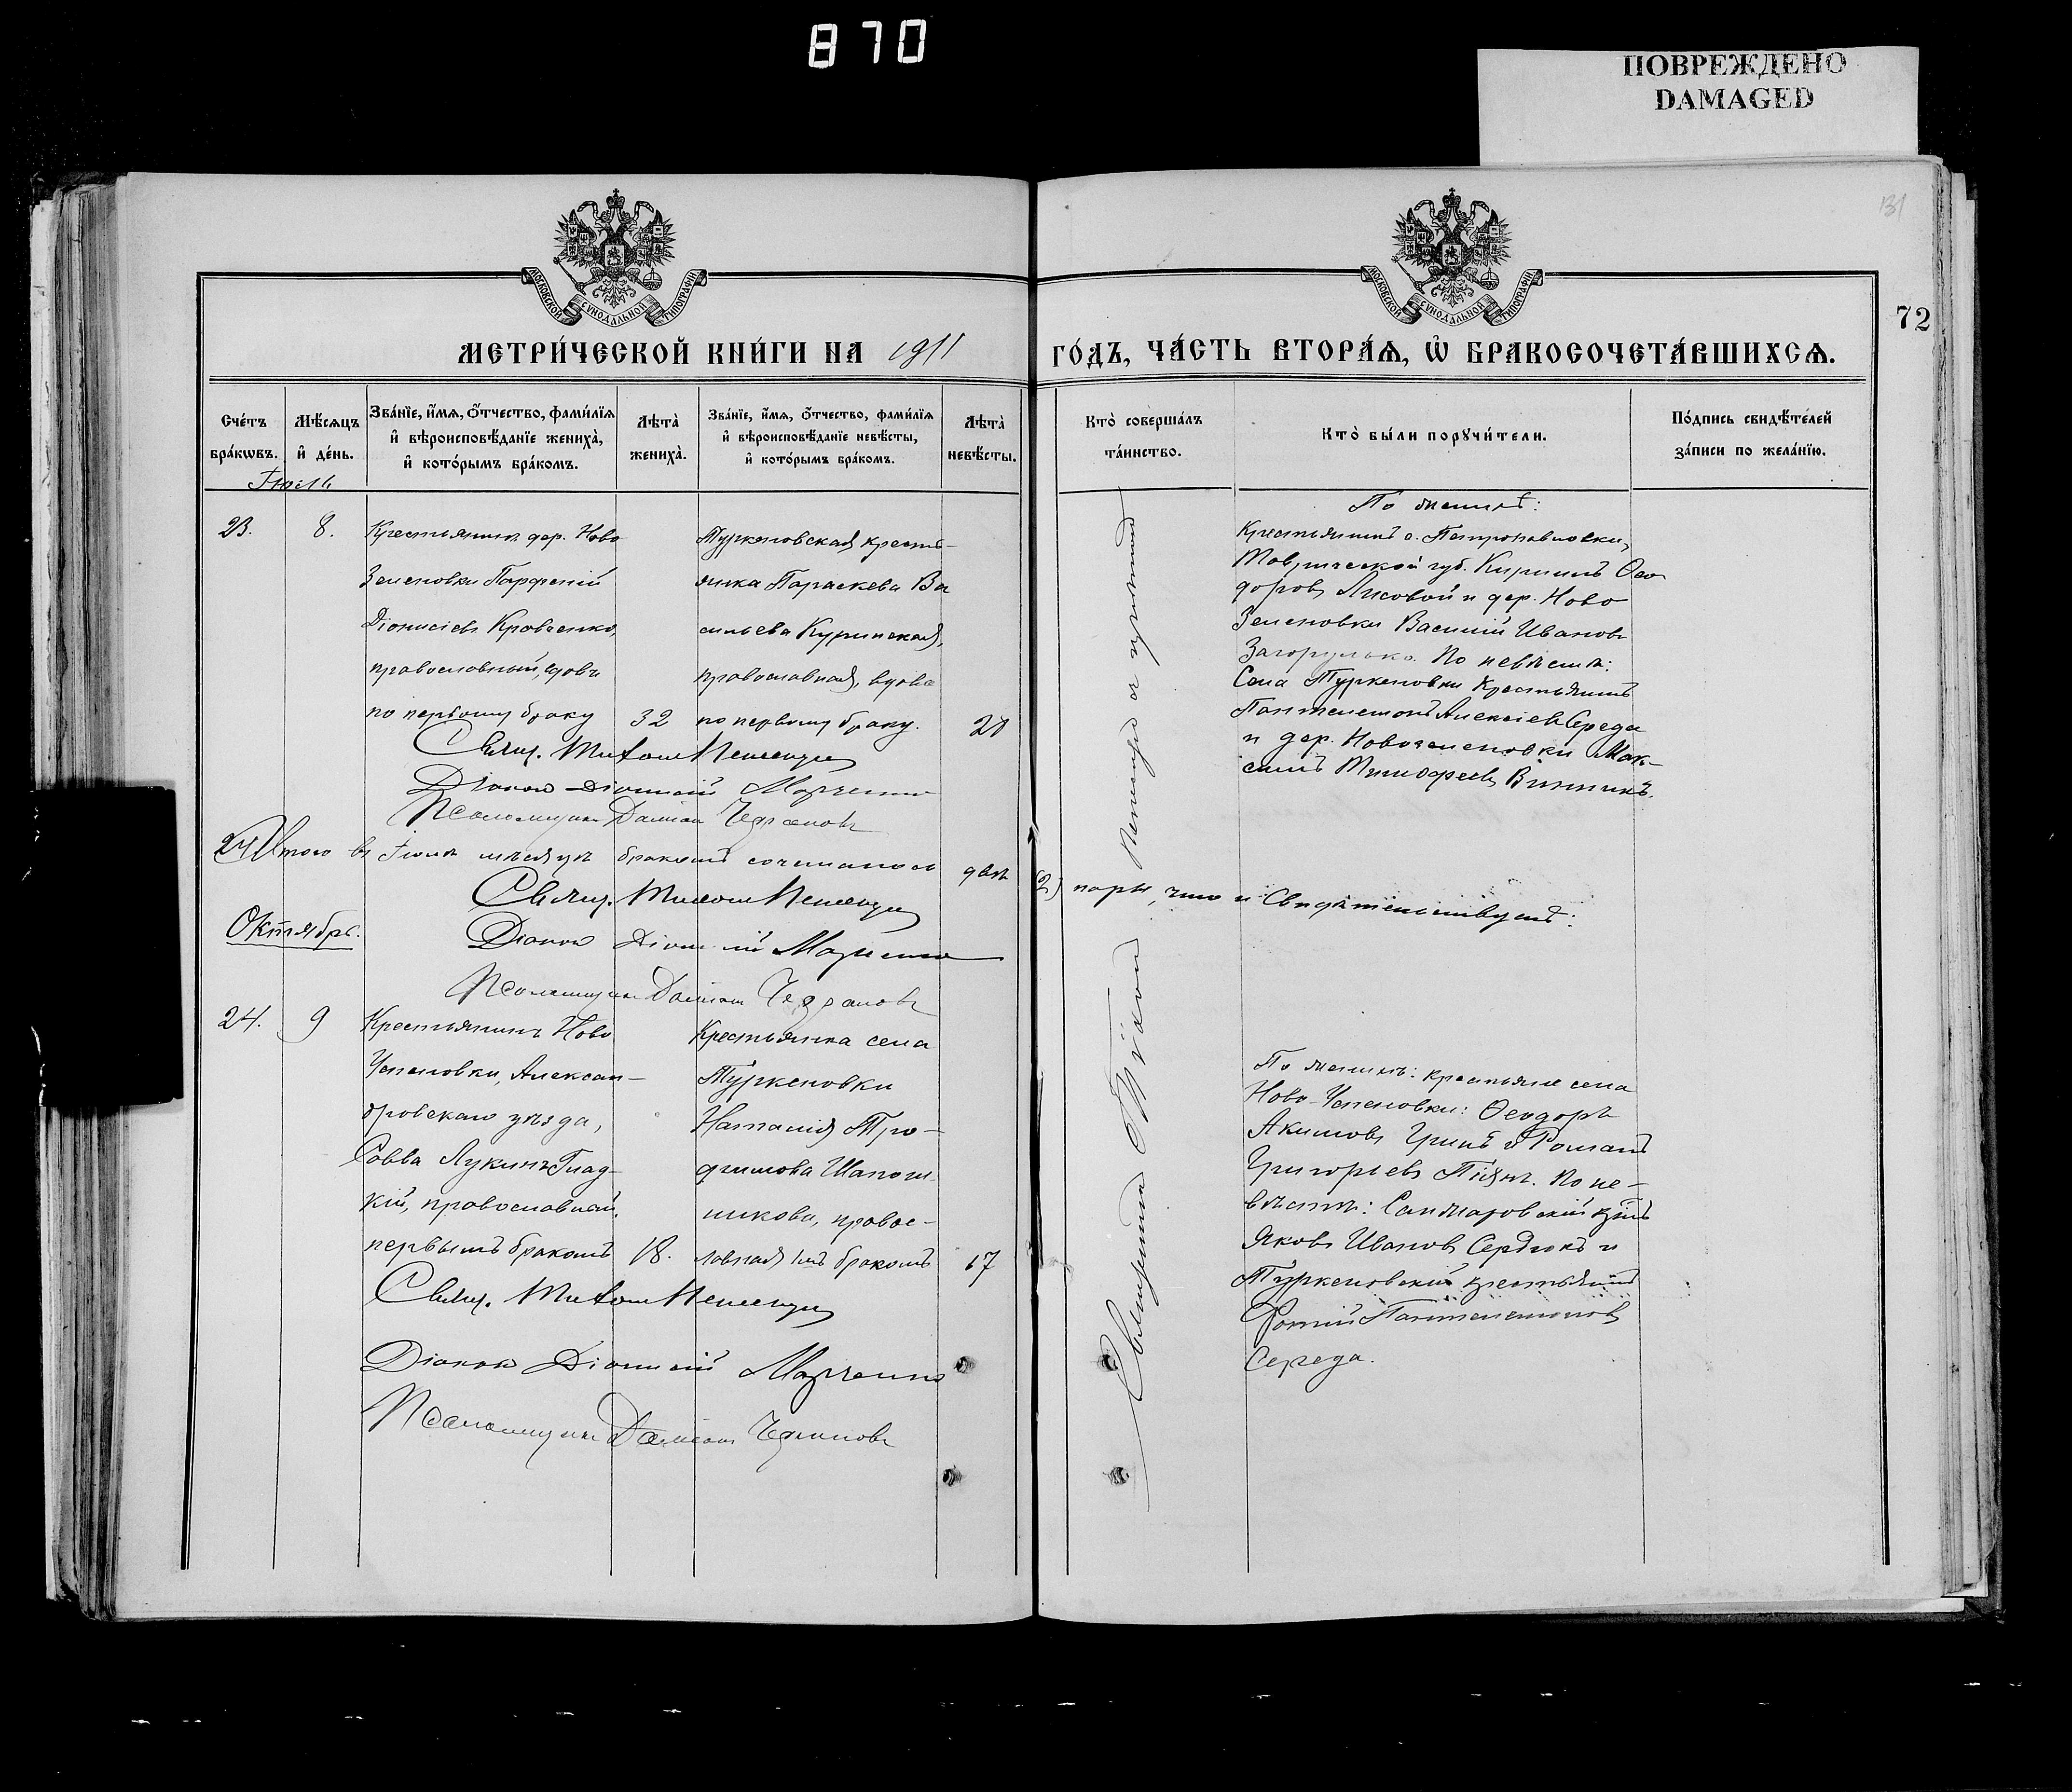 870
ПОВРЕЖДЕНО
DAMAGED
131
72
МОСКОВСКОЙ СѴНОДАЛЬНОЙ ТИПОГРАФІИ
МОСКОВСКОЙ СѴНОДАЛЬНОЙ ТИПОГРАФІИ
МЕТРИ́ЧЕСКОЙ КНИ́ГИ НА 1911 ГО́ДЪ, ЧА́СТЬ ВТОРА́Ѧ, Ѡ҆ БРАКОСОЧЕТА́ВШИХСѦ.
Сче́тъ бра́кѡвъ.
Мѣ́сѧцъ и҆ де́нь.
Зва́нїе, и҆́мѧ, ѻ҆́тчество, фами́лїѧ и҆ вѣроисповѣ́данїе женихà, и҆ кото́рымъ бра́комъ.
Лѣтà женихà.
Зва́нїе, и҆́мѧ, ѻ҆́тчество, фами́лїѧ и҆ вѣроисповѣ́данїе невѣ́сты, и҆ кото́рымъ бра́комъ.
Лѣтà невѣ́сты.
Ктò соверша́лъ та́инство.
Ктò бы́ли порꙋчи́тели.
По́дпись свидѣ́телей за́писи по жела́нїю.
Іюль
23.
8.
Крестьянинъ дер. Ново
Зеленовки Парфеній
Діонисіевъ Кравченко,
православный, вдовъ
по первому браку
32
Туркеновская кресть-
янка Параскева Ва
сильева Куринская,
православная, вдова
по первому браку.
Священникъ
По женихѣ:
Крестьянинъ с. Петропавловки,
Таврической губ. Кириллъ Ѳео
доровъ Лисовой и дер. Ново
Зеленовки Василій Ивановъ
Загорулько. По невѣстѣ:
Села Туркеновки крестьянинъ
Пантелеимонъ Алексіевъ Середа
и дер. Новозеленовки Мак-
симъ Тимоѳеевъ Винникъ.
Свящ.
Діаконъ Діонисій Марченко
Псаломщикъ Даміанъ
Итого въ Іюлѣ мѣсяцѣ бракомъ сочеталось двѣ (2) пары, что и свидѣтельствуемъ:
Свящ.
Діаконъ Діонисій Марченко
Псаломщикъ Даміанъ
Октябрь.
24.
9
Крестьянинъ Ново
Успеновки, Алексан-
дровскаго уѣзда,
Савва Лукинъ Глад-
кій, православный,
первымъ бракомъ
18.
Крестьянка села
Туркеновки
Наталія Тро-
фимова Шапош-
никова, правос-
лавная 1мъ бракомъ
17
По женихѣ: крестьяне села
Ново-Успеновки: Ѳеодоръ
Акимовъ Гринь и Романъ
Григорьевъ Піянъ. По не-
вѣстѣ: Санжаровскій
Яковъ Ивановъ Сердюкъ и
Туркеновскій крестьянинъ
Фотій Пантелеимоновъ
Середа.
Свящ.
Діаконъ Діонисій Марченко
Псаломщикъ Даміанъ